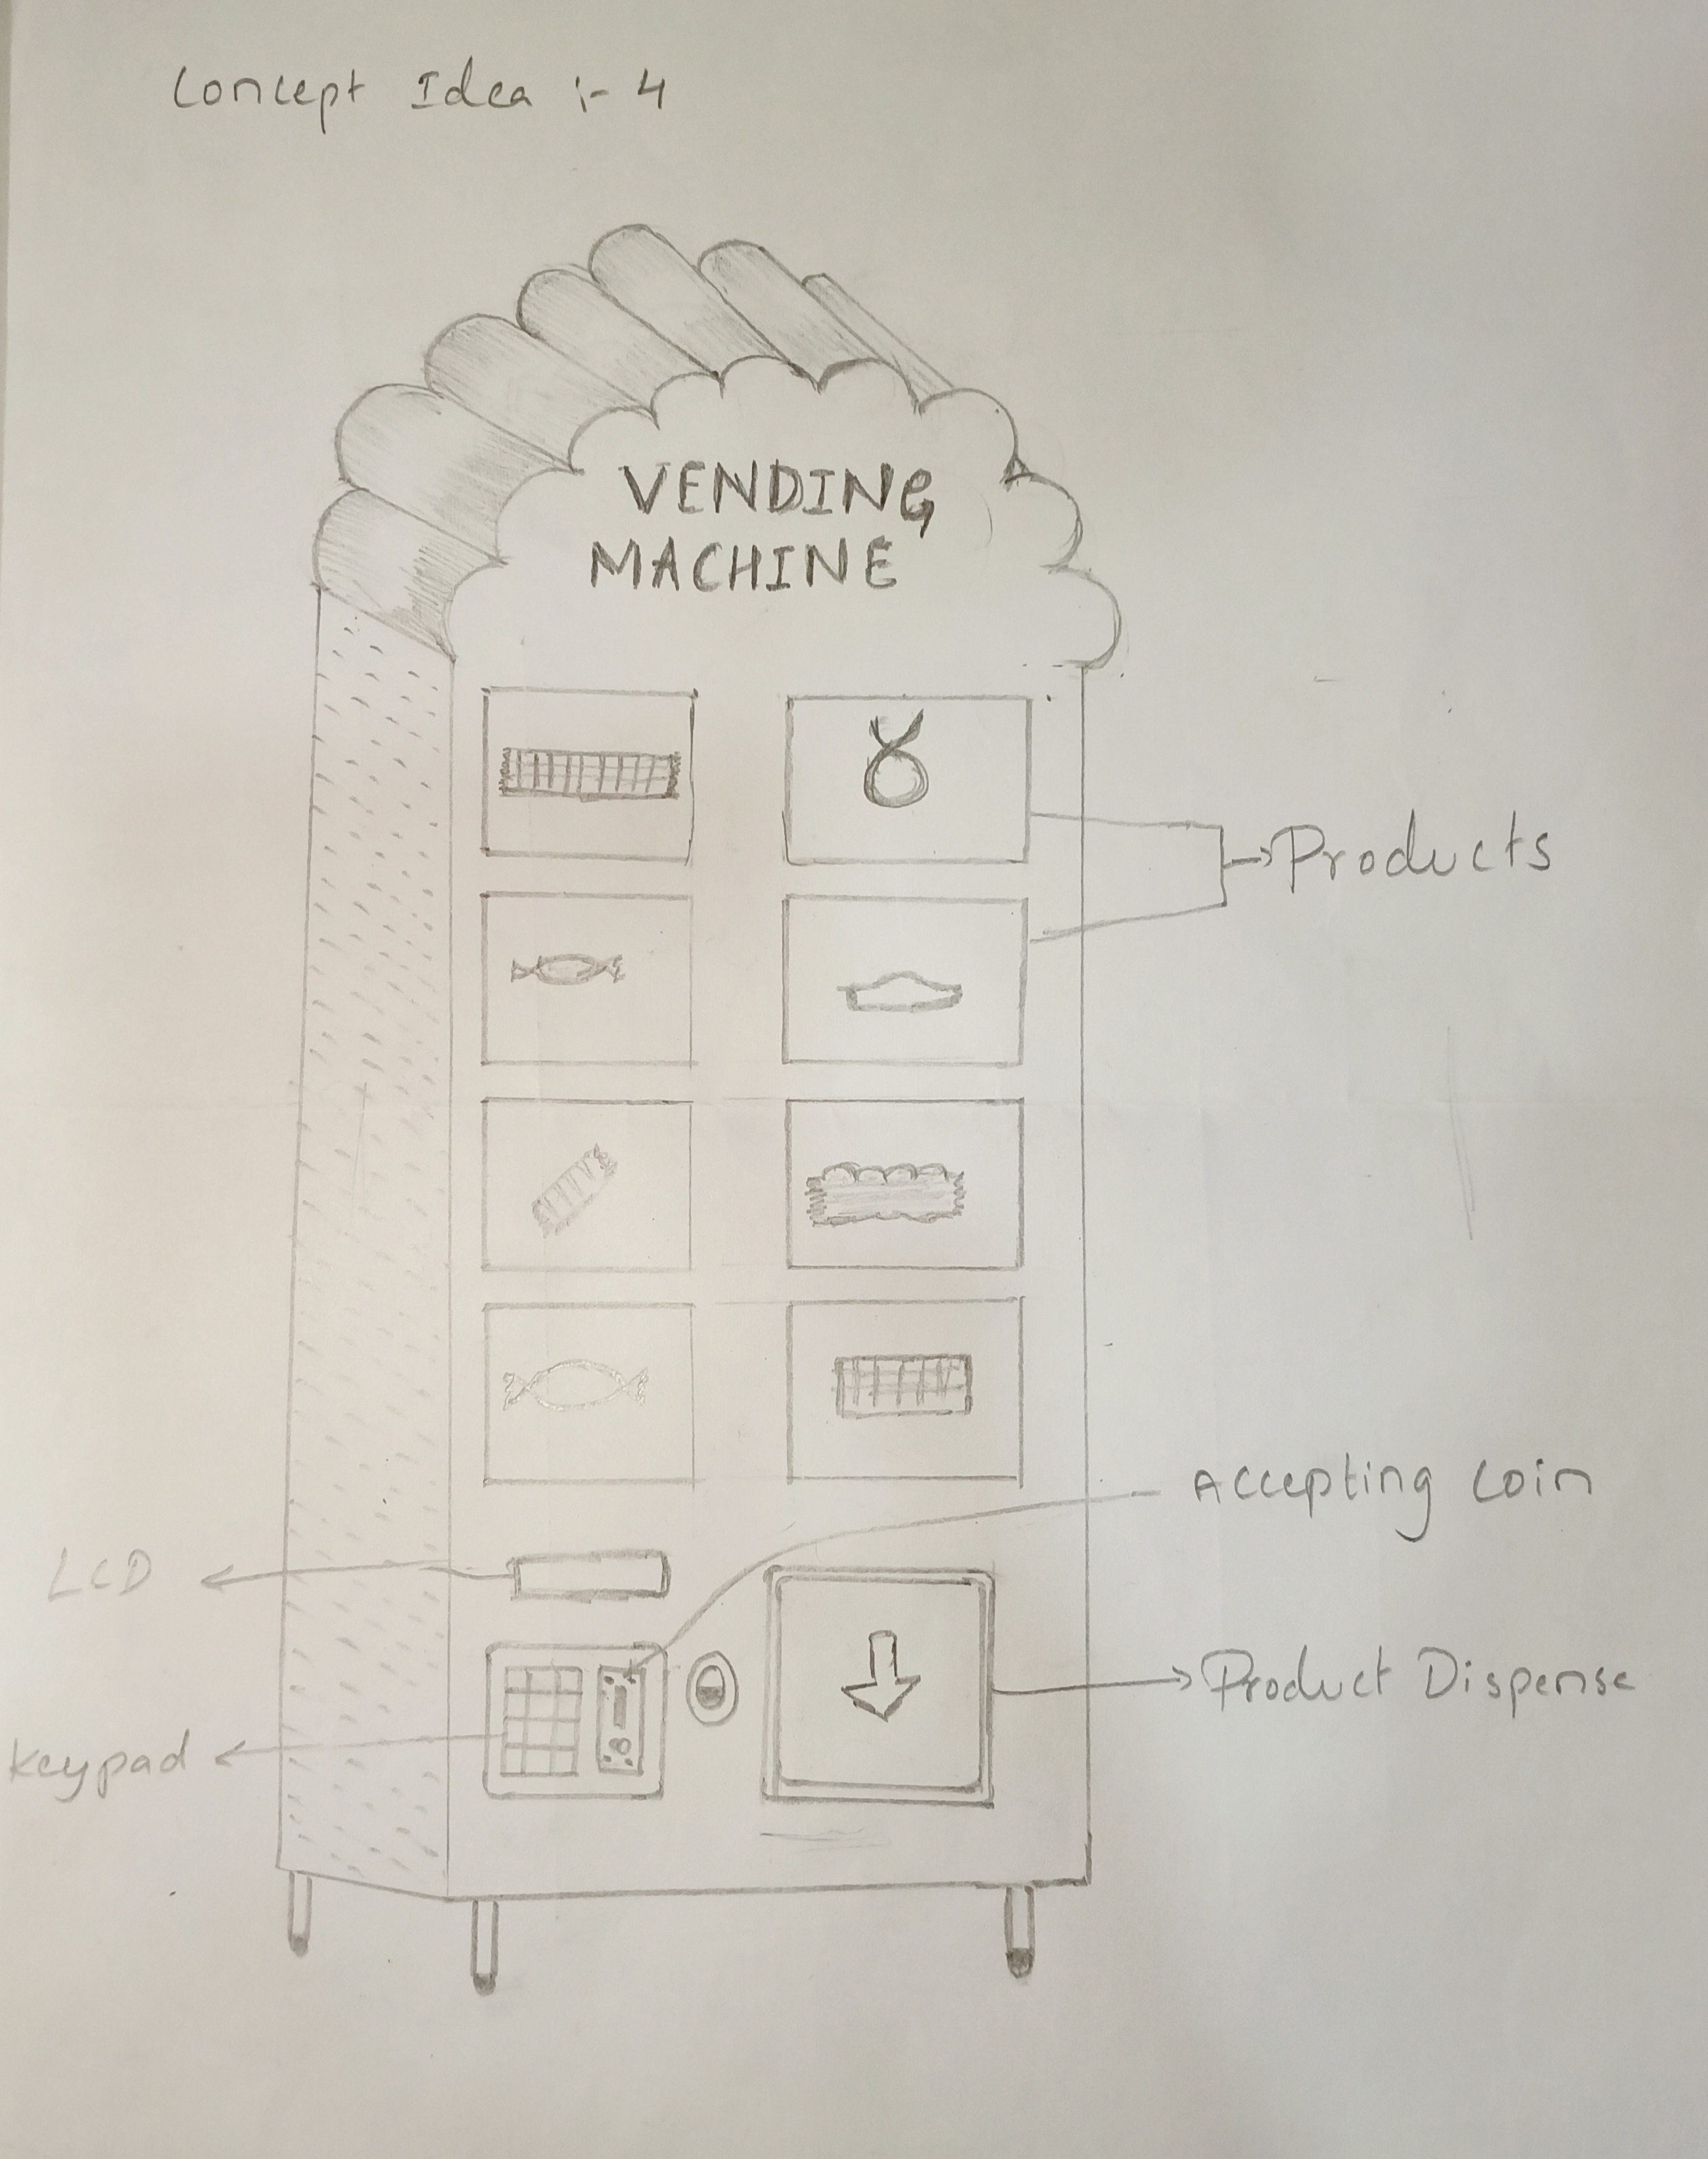 Concept Idea :- 4
VENDING
MACHINE
Products
Accepting coin
LCD
Product Dispense
keypad